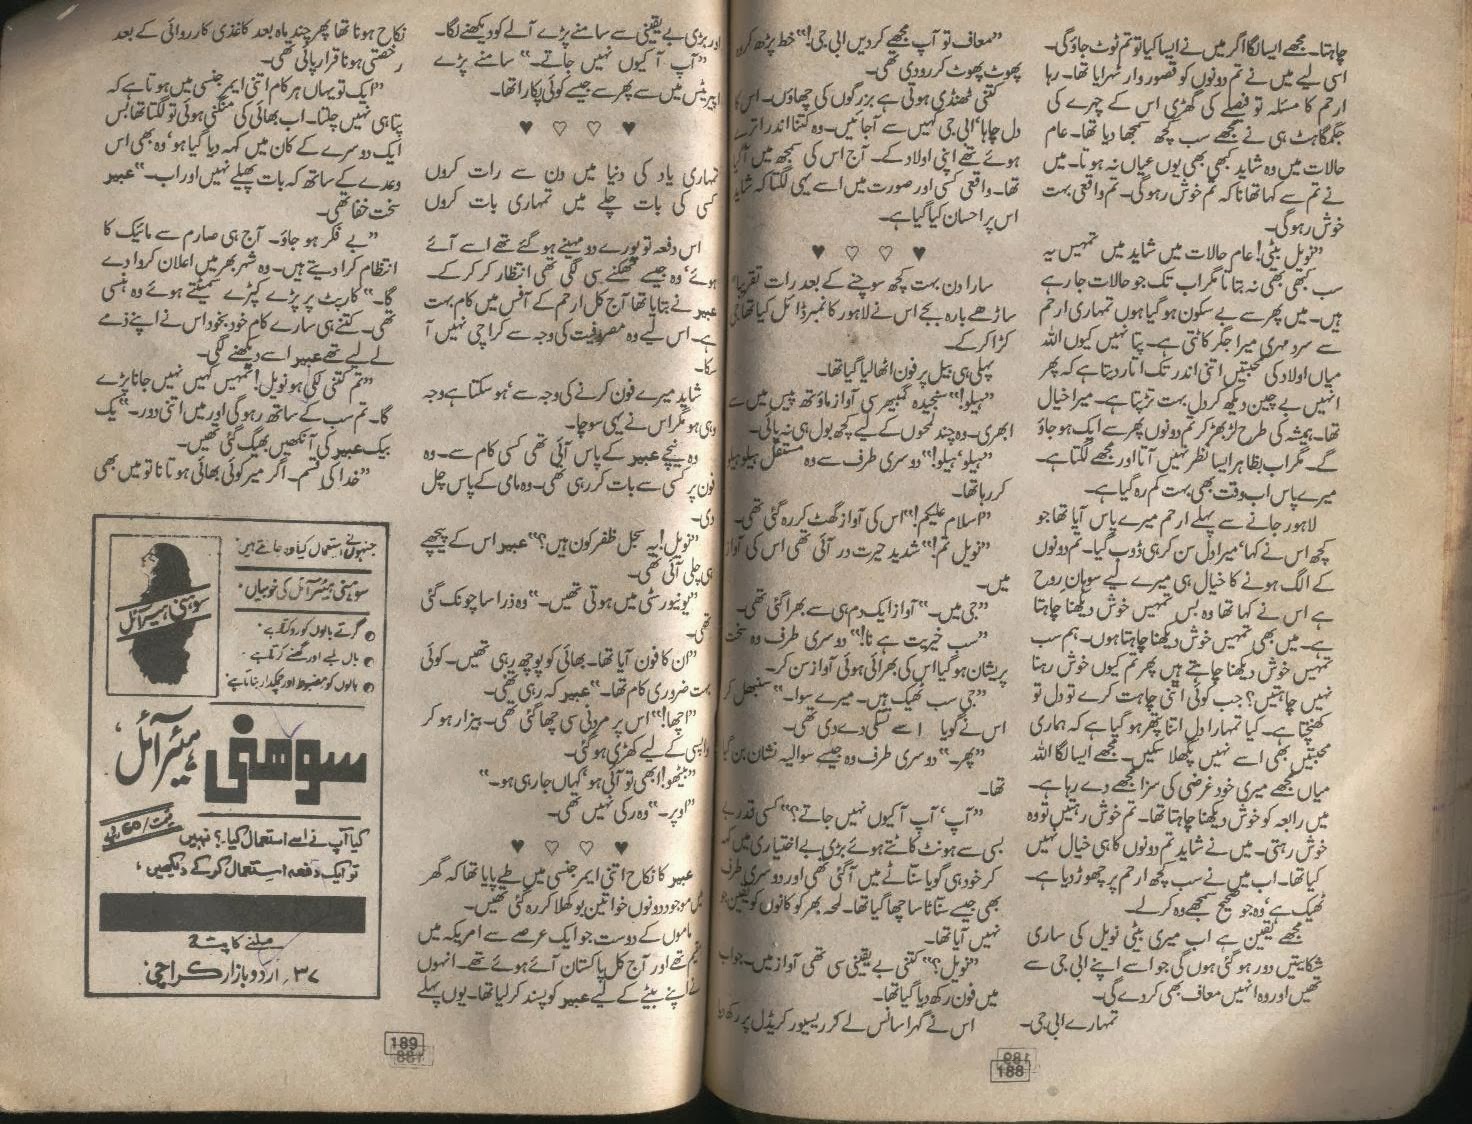 چاہتا۔ مجھے ایسا لگا اگر میں نے ایسا کیا تو تم ٹوٹ جاؤ گی۔
اسی لیے میں نے تم دونوں کو قصوروار ٹھہرایا تھا۔ رہا
ارحم کا مسئلہ تو فیصلے کی گھڑی اس کے چہرے کی
جگمگاہٹ ہی نے مجھے سب کچھ سمجھا دیا تھا۔ عام
حالات میں وہ شاید کبھی بھی یوں عیاں نہ ہوتا۔ میں
نے تم سے کہا تھا نا کہ تم خوش رہو گی۔ تم واقعی بہت
خوش رہو گی۔
”نویل بیٹی! عام حالات میں شاید میں تمہیں یہ
سب کبھی بھی نہ بتاتا مگر اب تک جو حالات جا رہے
ہیں۔ میں پھر سے بے سکون ہو گیا ہوں تمہاری ارحم
سے سرد مہری میرا جگر کاٹتی ہے۔ پتا نہیں کیوں اللہ
میاں اولاد کی محبتیں اتنی اندر تک اتار دیتا ہے کہ پھر
انہیں بے چین دیکھ کر دل بہت تڑپتا ہے۔ میرا خیال
تھا۔ ہمیشہ کی طرح لڑ بھڑ کر تم دونوں پھر سے ایک ہو جاؤ
گے۔ مگر اب بظاہر ایسا نظر نہیں آتا اور مجھے لگتا ہے۔
میرے پاس اب وقت بھی بہت کم رہ گیا ہے۔
لاہور جانے سے پہلے ارحم میرے پاس آیا تھا جو
کچھ اس نے کہا‘ میرا دل سن کر ہی ڈوب گیا۔ تم دونوں
کے الگ ہونے کا خیال ہی میرے لیے سوہان روح
ہے اس نے کہا تھا وہ بس تمہیں خوش دیکھنا چاہتا
ہے۔ میں بھی تمہیں خوش دیکھنا چاہتا ہوں۔ ہم سب
تمہیں خوش دیکھنا چاہتے ہیں پھر تم کیوں خوش رہنا
نہیں چاہتیں؟ جب کوئی اتنی چاہت کرے تو دل تو
کھنچتا ہے۔ کیا تمہارا دل اتنا پتھر ہو گیا ہے کہ ہماری
محبتیں بھی اسے نہیں پگھلا سکیں۔ مجھے ایسا لگا اللہ
میاں مجھے میری خود غرضی کی سزا مجھے دے رہا ہے۔
میں رابعہ کو خوش دیکھنا چاہتا تھا۔ تم خوش رہتیں تو وہ
خوش رہتی۔ میں نے شاید تم دونوں کا ہی خیال نہیں
کیا تھا۔ اب میں نے سب کچھ ارحم پر چھوڑ دیا ہے۔
ٹھیک ہے‘ وہ جو صحیح سمجھے وہ کر لے۔
مجھے یقین ہے اب میری بیٹی نویل کی ساری
شکایتیں دور ہو گئی ہوں گی جو اسے اپنے ابی جی سے
تھیں اور وہ انہیں معاف بھی کر دے گی۔
تمہارے ابی جی۔
”معاف تو آپ مجھے کر دیں ابی جی!“ خط پڑھ کر وہ
پھوٹ پھوٹ کر رو دی تھی۔
کتنی ٹھنڈی ہوتی ہے بزرگوں کی چھاؤں۔ اس کا
دل چاہا‘ ابی جی کہیں سے آ جائیں۔ وہ کتنا اندر اترے
ہوئے تھے اپنی اولاد کے۔ آج اس کی سمجھ میں آ گیا
تھا۔ واقعی کسی اور صورت میں اسے یہی لگتا کہ شاید
اس پر احسان کیا گیا ہے۔
♥ ♡ ♡ ♥
سارا دن بہت کچھ سوچنے کے بعد رات تقریباً
ساڑھے بارہ بجے اس نے لاہور کا نمبر ڈائل کیا تھا جی
کڑا کر کے۔
پہلی ہی بیل پر فون اٹھا لیا گیا تھا۔
”ہیلو!“ سنجیدہ گمبھیر سی آواز ماؤتھ پیس میں سے
ابھری۔ وہ چند لمحوں کے لیے کچھ بول ہی نہ پائی۔
”ہیلو‘ ہیلو!“ دوسری طرف سے وہ مستقل ہیلو ہیلو
کر رہا تھا۔
”اسلام علیکم!“ اس کی آواز گھٹ کر رہ گئی تھی۔
”نویل تم!“ شدید حیرت در آئی تھی اس کی آواز
میں۔
”جی میں۔“ آواز ایک دم ہی سے بھرا گئی تھی۔
”سب خیریت ہے نا!“ دوسری طرف وہ سخت
پریشان ہو گیا اس کی بھرائی ہوئی آواز سن کر۔
”جی سب ٹھیک ہیں۔ میرے سوا۔“ سنبھل کر
اس نے گویا اسے تسلی دے دی تھی۔
”پھر۔“ دوسری طرف وہ جیسے سوالیہ نشان بن گیا
تھا۔
”آپ‘ آپ آ کیوں نہیں جاتے؟“ کسی قدر بے
بسی سے ہونٹ کاٹتے ہوئے بڑی بے اختیاری میں کہہ
کر خود ہی گویا سناٹے میں آ گئی تھی اور دوسری طرف
بھی جیسے سناٹا سا چھا گیا تھا۔ لمحہ بھر کو کانوں کو یقین ہی
نہیں آیا تھا۔
”نویل؟“ کتنی بے یقینی سی تھی آواز میں۔ جواب
میں فون رکھ دیا گیا تھا۔
اس نے گہرا سانس لے کر ریسیور کریڈل پر رکھ دیا
188
اور بڑی بے یقینی سے سامنے پڑے آلے کو دیکھنے لگا۔
”آپ آ کیوں نہیں جاتے۔“ سامنے پڑے
اپریٹس میں سے پھر سے جیسے کوئی پکارا تھا۔
♥ ♡ ♡ ♥
تمہاری یاد کی دنیا میں دن سے رات کروں
کسی کی بات چلے میں تمہاری بات کروں
اس دفعہ تو پورے دو مہینے ہو گئے تھے اسے آئے
ہوئے‘ وہ جیسے تھکنے سی لگی تھی انتظار کر کر کے۔
عبیر نے بتایا تھا آج کل ارحم کے آفس میں کام بہت
ہے۔ اس لیے وہ مصروفیت کی وجہ سے کراچی نہیں آ
سکا۔
شاید میرے فون کرنے کی وجہ سے‘ ہو سکتا ہے وجہ
وہی ہو مگر اس نے یہی سوچا۔
وہ نیچے عبیر کے پاس آئی تھی کسی کام سے۔ وہ
فون پر کسی سے بات کر رہی تھی۔ وہ مامی کے پاس چل
دی۔
”نویل! یہ سجل ظفر کون ہیں؟“ عبیر اس کے پیچھے
ہی چلی آئی تھی۔
”یونیورسٹی میں ہوتی تھیں۔“ وہ ذرا سا چونک گئی
تھی۔
”ان کا فون آیا تھا۔ بھائی کو پوچھ رہی تھیں۔ کوئی
بہت ضروری کام تھا۔“ عبیر کہہ رہی تھی۔
”اچھا!“ اس پر مردنی سی چھا گئی تھی۔ بیزار ہو کر
واپسی کے لیے کھڑی ہو گئی۔
”بیٹھو! ابھی تو آئی ہو‘ کہاں جا رہی ہو۔“
”اوپر۔“ وہ رکی نہیں تھی۔
♥ ♡ ♡ ♥
عبیر کا نکاح اتنی ایمرجنسی میں طے پایا تھا کہ گھر
میں موجود دونوں خواتین بوکھلا کر رہ گئی تھیں۔
ماموں کے دوست جو ایک عرصے سے امریکہ میں
مقیم تھے اور آج کل پاکستان آئے ہوئے تھے۔ انہوں
نے اپنے بیٹے کے لیے عبیر کو پسند کر لیا تھا۔ یوں پہلے
نکاح ہونا تھا پھر چند ماہ بعد کاغذی کارروائی کے بعد
رخصتی ہونا قرار پائی تھی۔
”ایک تو یہاں ہر کام اتنی ایمرجنسی میں ہوتا ہے کہ
پتا ہی نہیں چلتا۔ اب بھائی کی منگنی ہوئی تو لگتا تھا بس
ایک دوسرے کے کان میں کہہ دیا گیا ہو‘ وہ بھی اس
وعدے کے ساتھ کہ بات پھیلے نہیں اور اب۔“ عبیر
سخت خفا تھی۔
”بے فکر ہو جاؤ۔ آج ہی صارم سے مائیک کا
انتظام کرا دیتے ہیں۔ وہ شہر بھر میں اعلان کروا دے
گا۔“ کارپٹ پر پڑے کپڑے سمیٹتے ہوئے وہ ہنسی
تھی۔ کتنے ہی سارے کام خود بخود اس نے اپنے ذمے
لے لیے تھے عبیر اسے دیکھنے لگی۔
”تم کتنی لکی ہو نویل! تمہیں کہیں نہیں جانا پڑے
گا۔ تم سب کے ساتھ رہو گی اور میں اتنی دور۔“ یک
بیک عبیر کی آنکھیں بھیگ گئی تھیں۔
”خدا کی قسم۔ اگر میر کوئی بھائی ہوتا نا تو میں بھی
جنہوں نے استعمال کیا وہ جانتے ہیں
سوہنی ہیئر آئل کی خوبیاں
گرتے بالوں کو روکتا ہے
بال لمبے اور گھنے کرتا ہے
بالوں کو مضبوط اور چمکدار بناتا ہے
سوہنی ہیئر آئل
سوہنی ہیئر آئل
قیمت/60 روپے
کیا آپ نے اسے استعمال کیا۔؟ نہیں
تو ایک دفعہ استعمال کر کے دیکھیں
ملنے کا پتہ
۳۷، اردو بازار کراچی
189